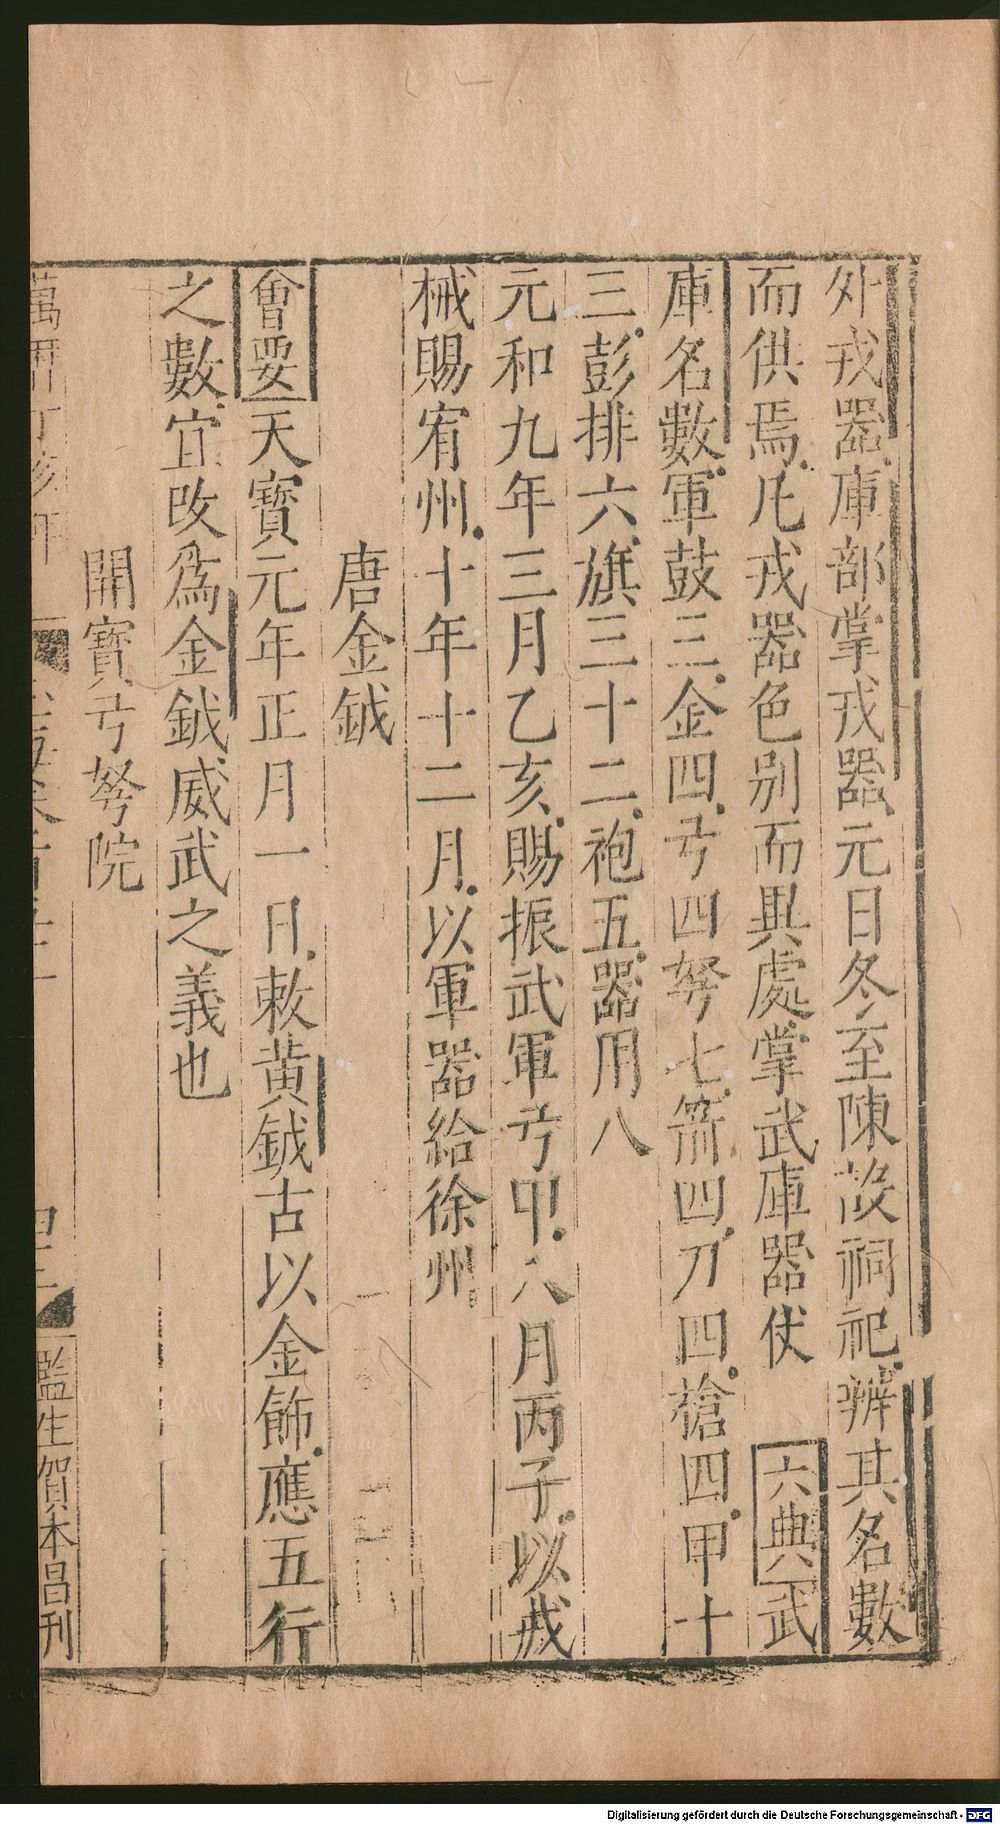 外戎器庫部掌戎器元日冬至陳設祠祀辨其名數
而供焉凡戎器色別而異處掌武庫器仗六典武
庫名數軍鼓三金四弓四弩七箭四刀四槍四甲十
三彭排六旗三十二袍五器用八
元和九年三月乙亥賜振武軍弓甲八月丙子以戎
械賜宥州十年十二月以軍器給徐州
唐金鉞
會要天寶元年正月一日敕黃鉞古以金飾應五行
之數宜改爲金鉞威武之義也
開寶弓弩院
萬曆丁亥年
監生賀本昌刊
Digitalisierung gefördert durch die Deutsche Forschungsgemeinschaft - DFG